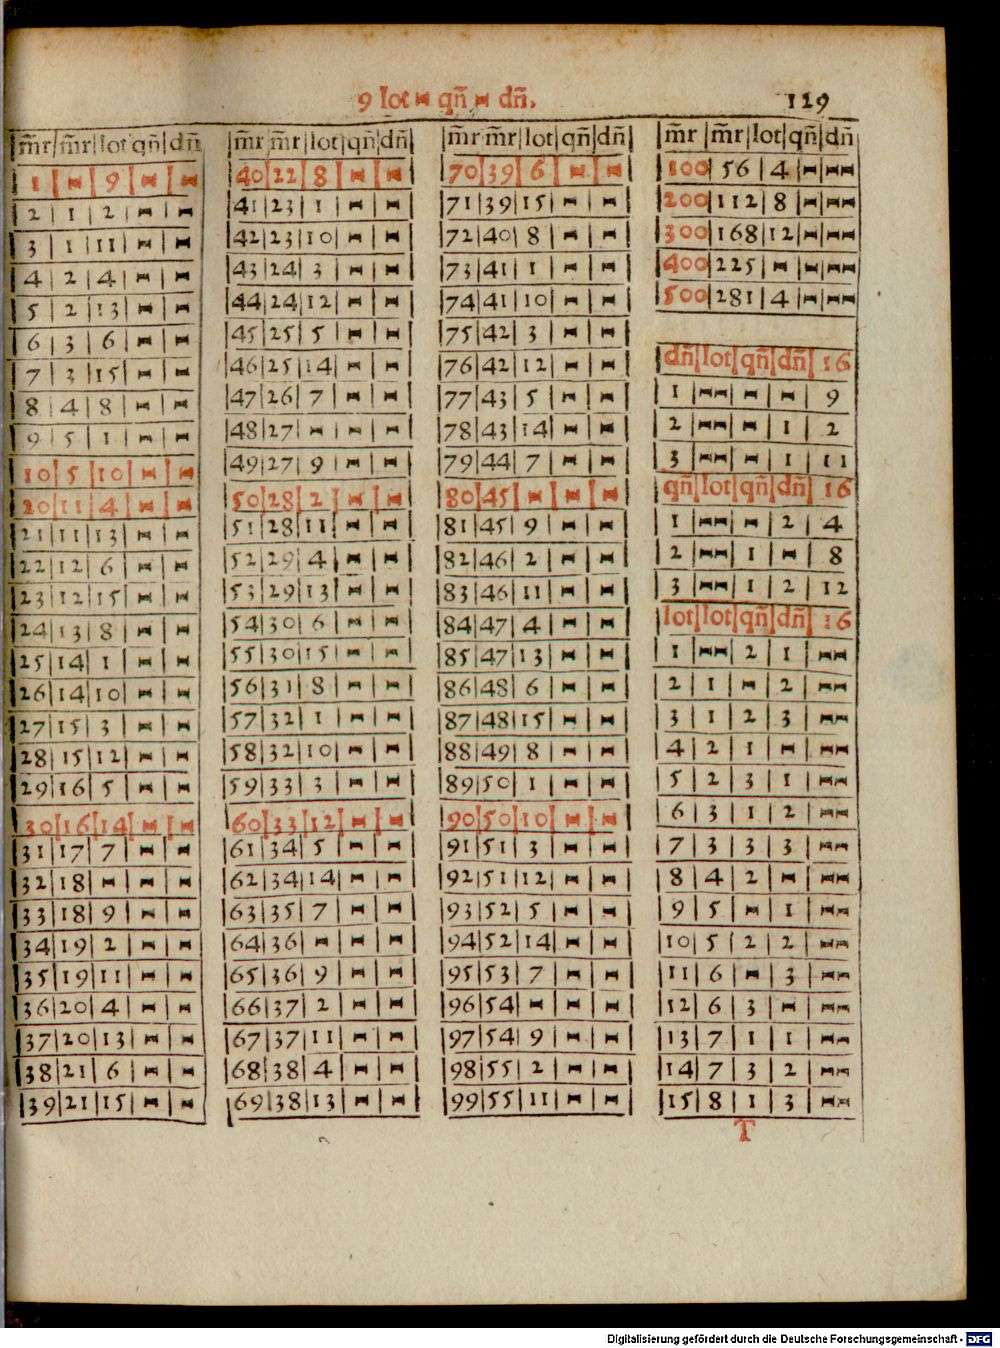 9 lot ⧓ qñ ⧓ dñ.
129
m̃r|m̃r|lot|qñ|dñ
1|⧓|9|⧓|⧓
2|1|2|⧓|⧓
3|1|11|⧓|⧓
4|2|4|⧓|⧓
5|2|13|⧓|⧓
6|3|6|⧓|⧓
7|3|15|⧓|⧓
8|4|8|⧓|⧓
9|5|1|⧓|⧓
10|5|10|⧓|⧓
20|11|4|⧓|⧓
21|11|13|⧓|⧓
22|12|6|⧓|⧓
23|12|15|⧓|⧓
24|13|8|⧓|⧓
25|14|1|⧓|⧓
26|14|10|⧓|⧓
27|15|3|⧓|⧓
28|15|12|⧓|⧓
29|16|5|⧓|⧓
30|16|14|⧓|⧓
31|17|7|⧓|⧓
32|18|⧓|⧓|⧓
33|18|9|⧓|⧓
34|19|2|⧓|⧓
35|19|11|⧓|⧓
36|20|4|⧓|⧓
37|20|13|⧓|⧓
38|21|6|⧓|⧓
39|21|15|⧓|⧓
m̃r|m̃r|lot|qñ|dñ
40|22|8|⧓|⧓
41|23|1|⧓|⧓
42|23|10|⧓|⧓
43|24|3|⧓|⧓
44|24|12|⧓|⧓
45|25|5|⧓|⧓
46|25|14|⧓|⧓
47|26|7|⧓|⧓
48|27|⧓|⧓|⧓
49|27|9|⧓|⧓
50|28|2|⧓|⧓
51|28|11|⧓|⧓
52|29|4|⧓|⧓
53|29|13|⧓|⧓
54|30|6|⧓|⧓
55|30|15|⧓|⧓
56|31|8|⧓|⧓
57|32|1|⧓|⧓
58|32|10|⧓|⧓
59|33|3|⧓|⧓
60|33|12|⧓|⧓
61|34|5|⧓|⧓
62|34|14|⧓|⧓
63|35|7|⧓|⧓
64|36|⧓|⧓|⧓
65|36|9|⧓|⧓
66|37|2|⧓|⧓
67|37|11|⧓|⧓
68|38|4|⧓|⧓
69|38|13|⧓|⧓
m̃r|m̃r|lot|qñ|dñ
70|39|6|⧓|⧓
71|39|15|⧓|⧓
72|40|8|⧓|⧓
73|41|1|⧓|⧓
74|41|10|⧓|⧓
75|42|3|⧓|⧓
76|42|12|⧓|⧓
77|43|5|⧓|⧓
78|43|14|⧓|⧓
79|44|7|⧓|⧓
80|45|⧓|⧓|⧓
81|45|9|⧓|⧓
82|46|2|⧓|⧓
83|46|11|⧓|⧓
84|47|4|⧓|⧓
85|47|13|⧓|⧓
86|48|6|⧓|⧓
87|48|15|⧓|⧓
88|49|8|⧓|⧓
89|50|1|⧓|⧓
90|50|10|⧓|⧓
91|51|3|⧓|⧓
92|51|12|⧓|⧓
93|52|5|⧓|⧓
94|52|14|⧓|⧓
95|53|7|⧓|⧓
96|54|⧓|⧓|⧓
97|54|9|⧓|⧓
98|55|2|⧓|⧓
99|55|11|⧓|⧓
m̃r|m̃r|lot|qñ|dñ
100|56|4|⧓|⧓⧓
200|112|8|⧓|⧓⧓
300|168|12|⧓|⧓⧓
400|225|⧓|⧓|⧓⧓
500|281|4|⧓|⧓⧓
dñ|lot|qñ|dñ|16
1|⧓⧓|⧓|⧓|9
2|⧓⧓|⧓|1|2
3|⧓⧓|⧓|1|11
qñ|lot|qñ|dñ|16
1|⧓⧓|⧓|2|4
2|⧓⧓|1|⧓|8
3|⧓⧓|1|2|12
lot|lot|qñ|dñ|16
1|⧓⧓|2|1|⧓⧓
2|1|⧓|2|⧓⧓
3|1|2|3|⧓⧓
4|2|1|⧓|⧓⧓
5|2|3|1|⧓⧓
6|3|1|2|⧓⧓
7|3|3|3|⧓⧓
8|4|2|⧓|⧓⧓
9|5|⧓|1|⧓⧓
10|5|2|2|⧓⧓
11|6|⧓|3|⧓⧓
12|6|3|⧓|⧓⧓
13|7|1|1|⧓⧓
14|7|3|2|⧓⧓
15|8|1|3|⧓⧓
T
Digitalisierung gefördert durch die Deutsche Forschungsgemeinschaft - DFG